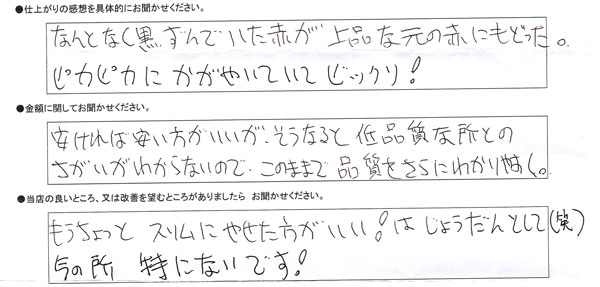 ●仕上がりの感想を具体的にお聞かせください。
なんとなく黒ずんでいた赤が上品な元の赤にもどった。
ピカピカにかがやいていてビックリ!
●金額に関してお聞かせください。
安ければ安い方がいいが、そうなると低品質な所との
さがいがわからないので、このままで品質をさらにわかりやすく。
●当店の良いところ、又は改善を望むところがありましたら お聞かせください。
もうちょっとスリムにやせた方がいい!はじょうだんとして(笑)
今の所 特にないです!